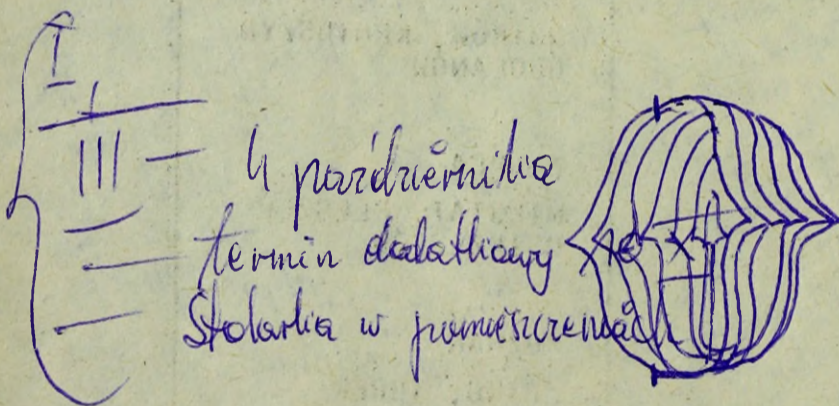 I
III — 4 października
— termin dodatkowy 10 XI
— Stolarka w pomieszczeniach